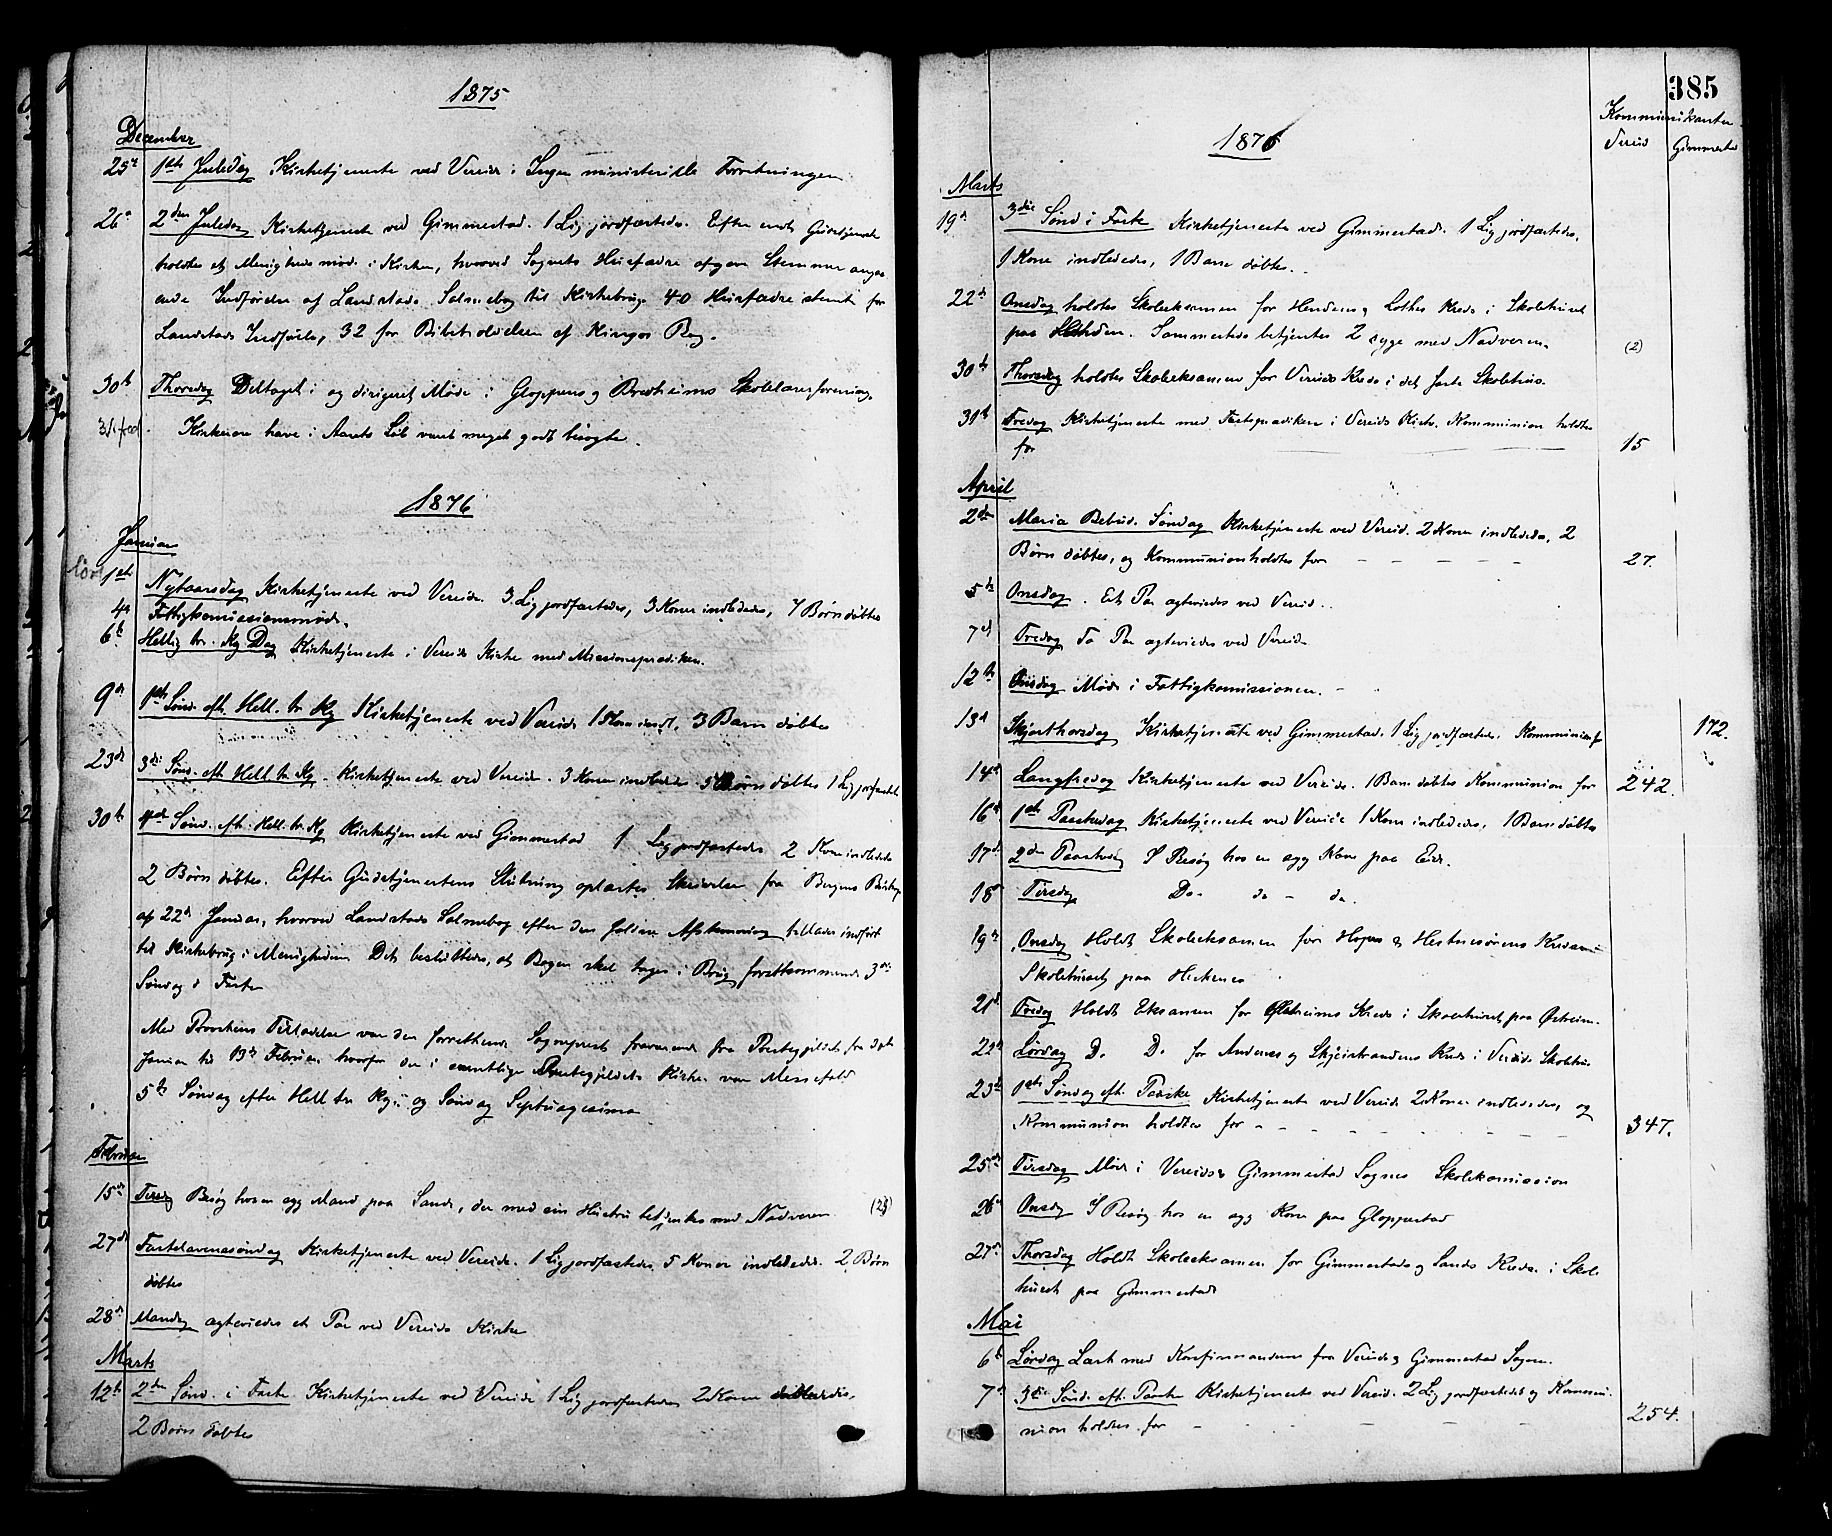 1875
December
25de 1ste Juledag Kirketjeneste ved Vereide. Ingen ministerielle Forretninger
26de 2den Juledag Kirketjeneste ved Gimmestad. 1 Lig jordfæstedes. Efter endt Gudstjeneste
holdtes et Menighedsmøde i Kirken, hvorved Sognets Husfædre afgave Stemmer angaa
ende Indførelse af Landstads Salmebog til Kirkebrug. 40 Husfædre stemte for
Landstads Indførelse, 32 for Bibeholdelsen af Kingos Bog.
30te Thorsdag Deltaget i og dirigeret Møde i Gloppens og Bredheims Skolelærerforening.
31. fred. Kirkerne have i Aarets Løb været meget godt besøgte.
1876
Januar
Lørd 1ste Nytaarsdag Kirketjeneste ved Vereide. 3 Lig jordfæstedes, 3 Koner indlededes, 7 Børn døbtes
4de Fattigkomissionsmøde.
6te Hellig tr. Kg Dag Kirketjeneste i Vereids Kirke med Missionsprædiken.
9de 1ste Sønd. eft. Hell. tr. Kg Kirketjeneste ved Vereide 1 Kone indl. 3 Børn døbtes
23de 3die Sønd. eft. Hell. tr. Kg. Kirketjeneste ved Vereide. 3 Koner indlededes 5 Børn døbtes 1 Lig jordfæstet
30te 4de Sønd. eft. Hell. tr. Kg Kirketjeneste ved Gimmestad 1 Lig jordfæstedes 2 Koner indlededes
2 Børn døbtes. Efter Gudstjenestens Slutning oplæstes Skrivelse fra Bergens Biskop
af 22de Januar, hvorved Landstads Salmebog efter den foldne Afstemning tillades indført
til Kirkebrug i Menigheden. Det besluttedes, at Bogen skal tages i Brug førstkommende 3die
Søndag i Faste
Med Provstens Tilladelse var den forrettende Sognepræst fraværende fra Præstegjeldet fra
Januar til 13de Februar hvorfor der i samtlige Præstegjeldets Kirker var Messefald
5te Søndag efter Hell tr Kg. og Søndag Septuagesima
Februar
15de Tirsdag Besøg hos en syg Mand paa Sande, der med sin Hustru betjentes med Nadveren (2)
27de Fastelavenssøndag Kirketjeneste ved Vereide. 1 Lig jordfæstedes 5 Koner indlededes. 2 Børn
døbtes
28de Mandag ægteviedes et Par ved Vereids Kirke
Marts
12te 2den Sønd. i Faste Kirketjeneste ved Vereide 1 Lig jordfæstedes 2 Koner indlededes.
2 Børn døbtes
385
Kommunikanter
Vereid Gimmestad
1876
Marts
19de 3die Sønd i Faste Kirketjeneste ved Gimmestad. 1 Lig jordfæstedes,
1 Kone indlededes, 1 Barn døbtes.
22de Onsdag holdtes Skoleeksamen for Hendens og Lothes Kreds i Skolehuset
paa Henden. Sammesteds betjentes 2 syge med Nadveren. (2)
30te Thorsdag holdtes Skoleeksamen for Vereids Kreds i det faste Skolehus.
31te Fredag Kirketjeneste med Fasteprædiken i Vereids Kirke. Kommunion holdtes
for 15
April
2den Maria Bebud. Søndag Kirketjeneste ved Vereid. 2 Koner indlededes, 2
Børn døbtes, og Kommunion holdtes for 27.
5te Onsdag. Et Par ægteviedes ved Vereid.
7de Fredag To Par ægteviedes ved Vereide
12te Onsdag Møde i Fattigkomissionen.
13de Skjærthorsdag Kirketjeneste ved Gimmestad. 1 Lig jordfæstedes. Kommunion for 172.
14de Langfredag Kirketjeneste ved Vereide. 1 Barn døbtes Kommunion for 242.
16de 1ste Paaskedag Kirketjeneste ved Vereide 1 Kone indlededes, 1 Barn døbtes
17de 2den Paaskedag I Besøg hos en syg Kone paa Eide.
18de Tirsdag Do. do - do.
19de Onsdag Holdt Skoleeksamen for Hopes & Hestnesørens Kredse
Skolehuset paa Hestenes
21de Fredag Holdt Eksamen for Østreims Kreds i Skolehuset paa Østreim.
22de Lørdag Do Do for Andenes og Skjeistrandens Kreds i Vereids Skolehus.
23de 1ste Søndag eft. Paaske Kirketjeneste ved Vereide 2 Koner indlededes, og
Kommunion holdtes for 347.
25de Tirsdag Møde i Vereids & Gimmestad Sognes Skolekomission
26de Onsdag I Besøg hos en syg Kone paa Gloppestad
27de Thorsdag Holdt Skoleeksamen for Gimmestads og Sands Kreds i Skole
huset paa Gimmestad
Mai
6te Lørdag Læst med Konfirmanderne fra Vereids & Gimmestad Sogne.
7de 3die Sønd. eft. Paaske Kirketjeneste ved Vereid. 2 Lig jordfæstedes og Kommu
nion holdtes for 254.